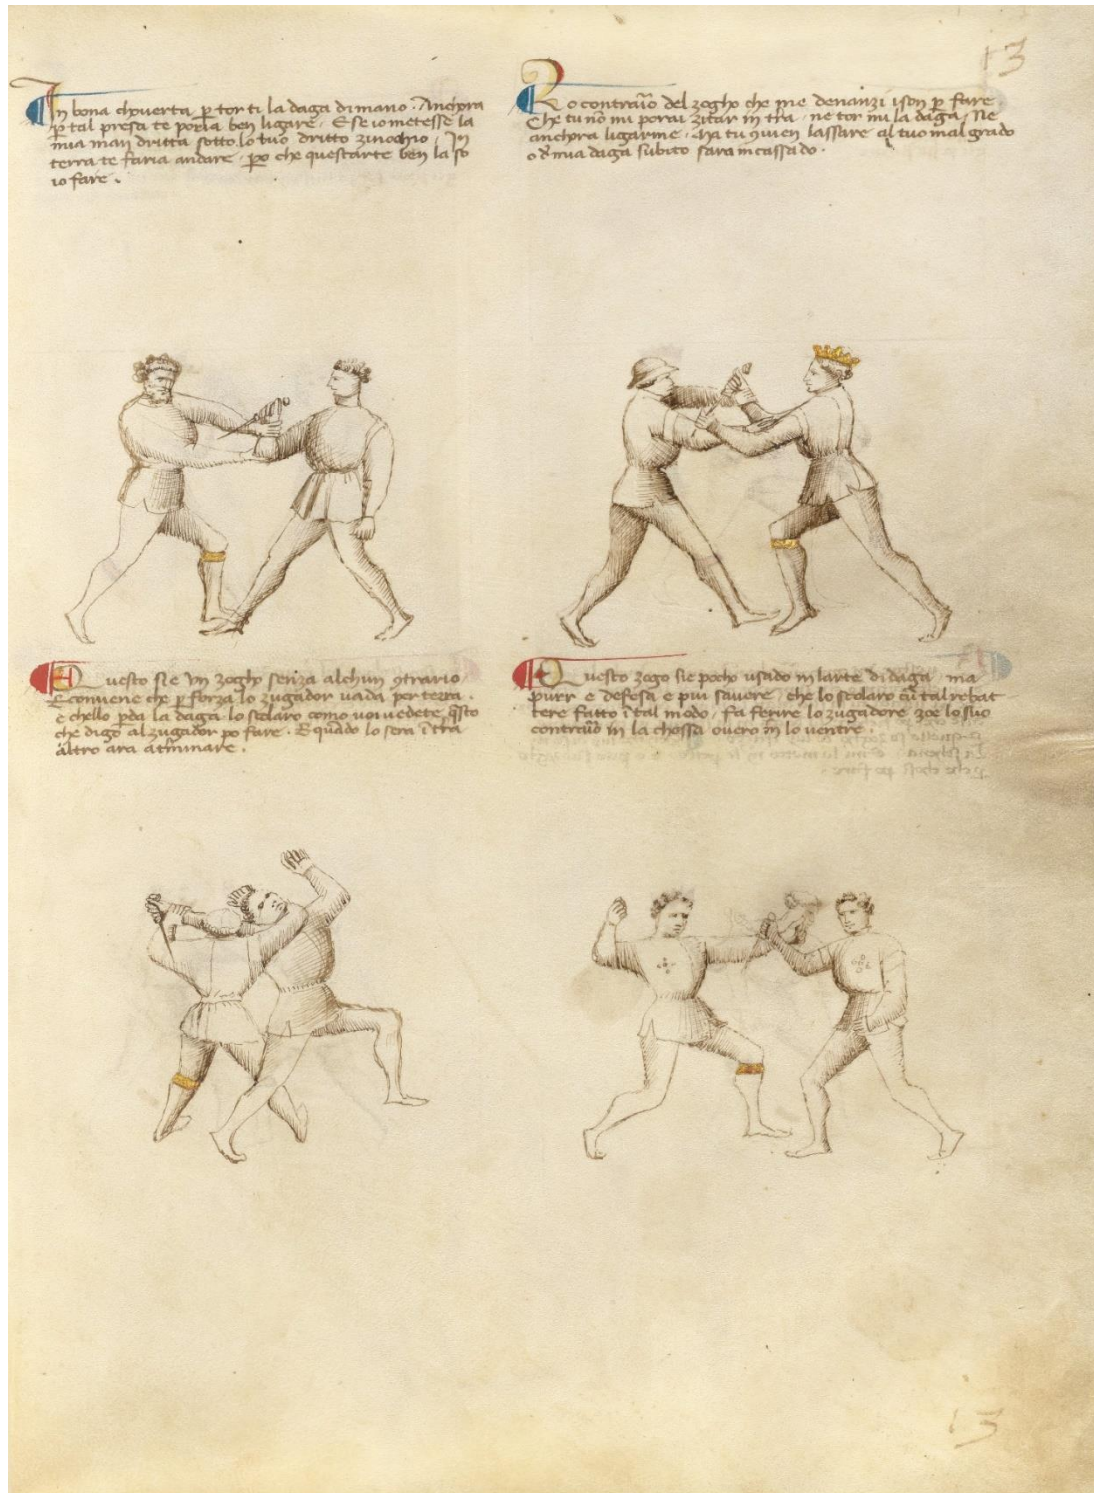 13
In bona choverta p̱ tor ti la daga di mano. Anchora
p̱ tal presa te poria ben ligare. E se io metesse la
mia man dritta sotto lo tuo dritto zinochio / In
terra te faria andare / p̱o che questarte ben la so
io fare.
Lo contraꝛ̄io del zogho che me denanzi i son p̱ fare
Che tu nō mi porai zitar in tr̄a / ne tor mi la daga / Ne
anchora ligarme / Ma tu ꝯvien lassare al tuo mal grado
o d' mia daga subito sara incassado.
Questo si e un zogho senza alchun ꝯtrario /
E conviene che p̱ forza lo zugador vada per terra.
e chello p̱da la daga. lo scolaro como voi vedete q̄sto
che digo al zugador po fare. E quādo lo sera ī tr̄a
altro ara a t̄minare.
Questo zogo sie pocho usado in larte di daga / ma
purr e defesa e piu savere / che lo scolaro cū tal rebat
tere fatto ī tal modo / fa ferire lo zugadore zoe lo suo
contraīo in la chossa overo in lo ventre.
13